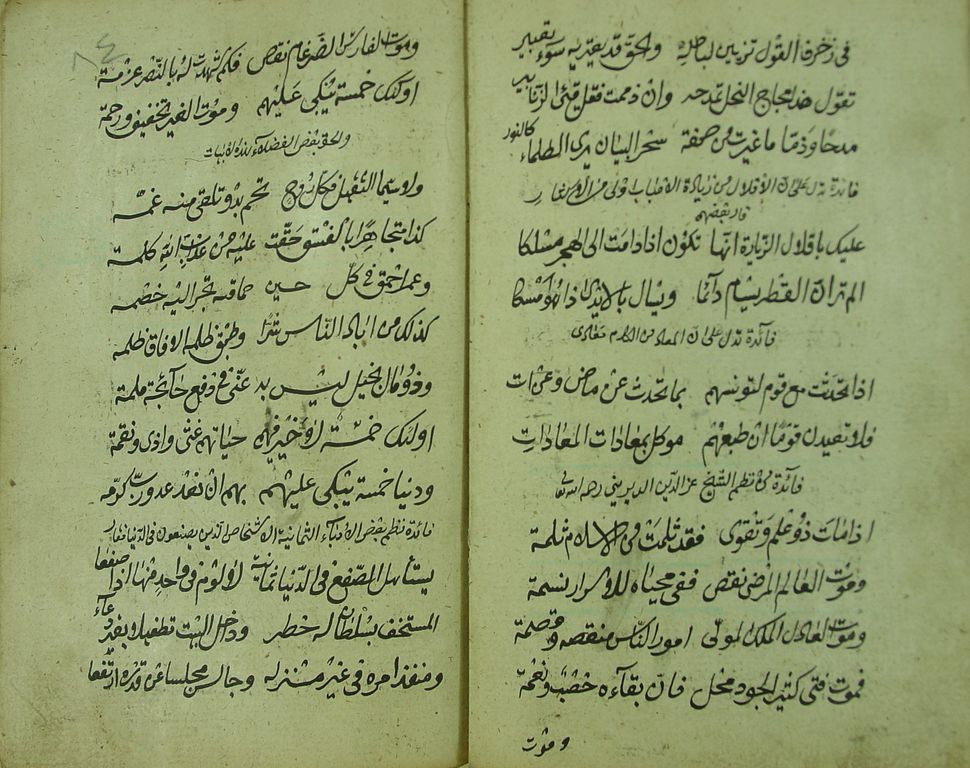 في زخرف القول تزيين لباطله والحق قد يعتريه سوء تعبير
تقول هذا مجاج النحل تمدحه وان ذممت فقل قيئ الزنابير
مدحا وذما ما غيرت من صفة سحر البيان يرى الظلماء كالنور
فائدة تدل على ان الاقلال من زيادة
قال بعضهم
عليك باقلال الزيارة انها تكون اذا دامت الى الهجر مسلكا
الم تر ان القطر يسام دائما ويسال بالايدي اذا هو امسكا
فائدة تدل على ان المعاد من الكلام معادى
اذا تحدثت مع قوم لتونسهم بما تحدث عن ماض وعن ات
فلا تعيدن قوما ان طبعهم موكل بمعادات المعادات
فائدة من نظم الشيخ عز الدين الديريني رحمه الله تعا
اذا مات ذو علم وتقوى فقد ثلمت من الاسلام ثلمة
وموت العالم المرضى نقص ففي محياه للاسرار نسمة
وموت العادل الملك المولى امور الناس منقصة وقصمة
فموت فتى كثير الجود محل فان بقاءه خصب ونعمة
وموت
وموت الفارس الضرغام نقص فكم شهدت له بالنصر عزمة
اولئك خمسة يبكى عليهم وموت الغير تخفيف ورحمة
والحق بعض الفضلاء بهذه الابيات
ولا سيما الثقيل فكل روح تحم بدو تلقى منه غمه
كذا متجاهرا بالفسق حقت عليه من عذاب الله كلمة
وعم احمق في كل حين حماقته تجر اليه خصمه
كذلك من اباد الناس شرا وطبق ظلمه الافاق ظلمه
وذو مال بخيل ليس يدعى في دفع حائجة ملمة
اولئك خمسة لا خير فيهم حياتهم عنى واذى ونقمة
ودنيا خمسة يبكى عليهم بهم ان تغد عدوت كرمه
فائدة نظم بعض الادباء الثمانية الاشخاص الذين يصفعون في الدنيا فقال
يستاهل الصفع في الدنيا ثمانية لا لوم في واحد منها اذا صفعا
المستخف بسلطان له خطر وداخل البيت تطفيلا بغير دعاء
ومنفذ امره في غير منزله وجالس مجلسا عن قدره ارتفعا